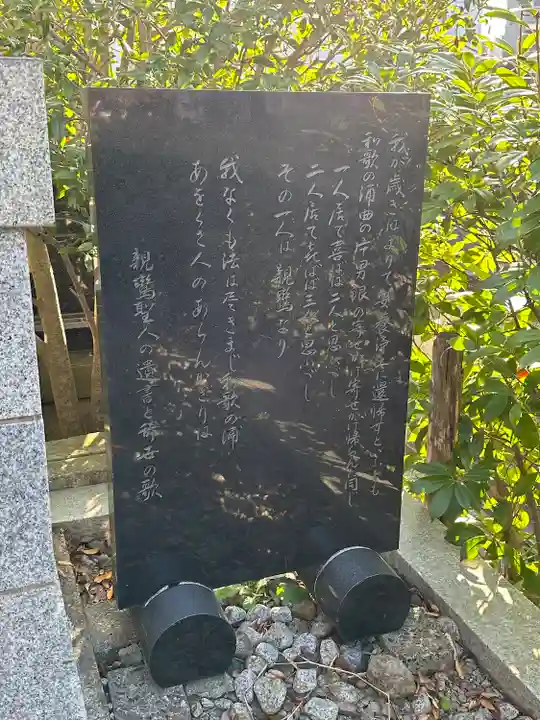 我が歳きはまりて安養浄土に還帰すといえども
和歌の浦曲の片男浪の寄せかけ寄せかけ帰らんに同じ
一人居て喜ばは二人と思ふべし
二人居て喜ばは三人と思ふべし
その一人は親鸞なり
我なくも法は尽きまじ和歌の浦
あをくさ人のあらんかぎりは
親鸞聖人の遺言と辞世の歌